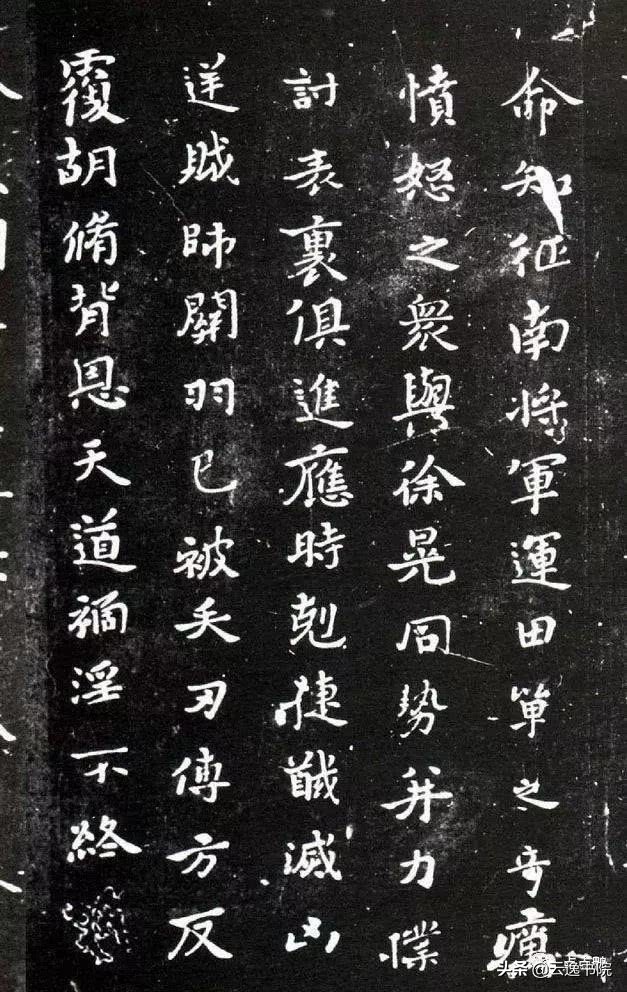 命知征南將軍運田單之奇癘
憤怒之衆與徐晃同势并力撲
討表裏俱進應時剋捷馘滅凶
逆賊帥關羽已被矢刃傅方反
覆胡脩背恩天道禍淫不終
头条 @云逸书院